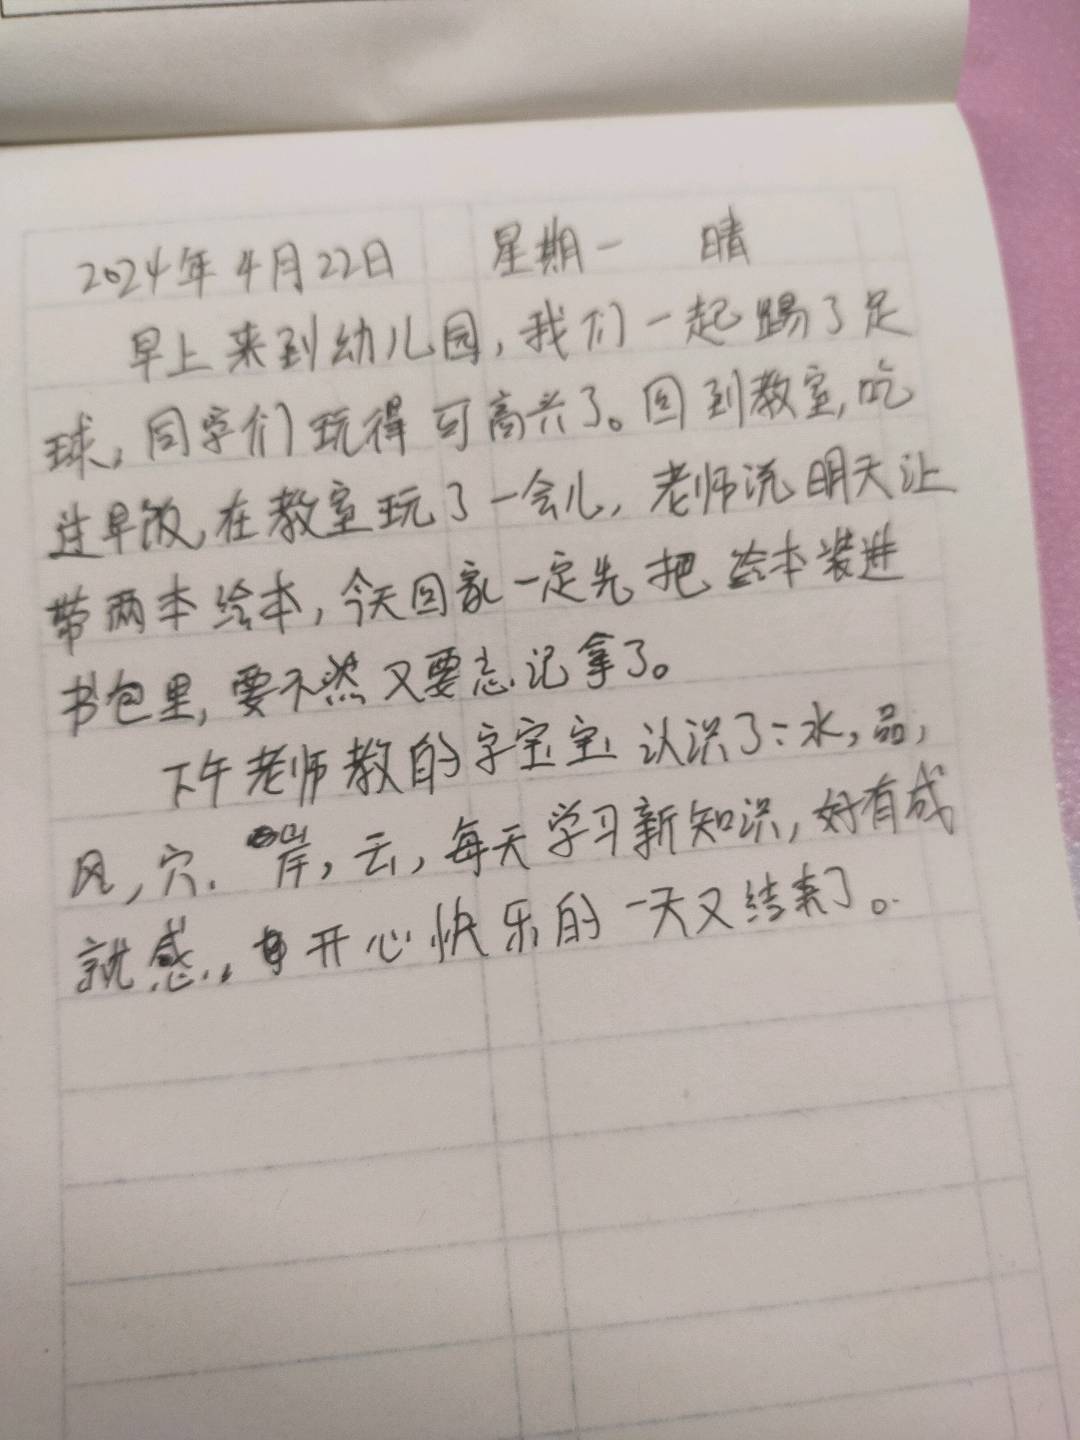 2024年4月22日 星期一 晴
早上来到幼儿园,我们一起踢了足
球,同学们玩得可高兴了。回到教室,吃
过早饭,在教室玩了一会儿,老师说明天让
带两本绘本,今天回家一定先把绘本装进
书包里,要不然又要忘记拿了。
下午老师教的字宝宝认识了:水,品,
风,穴.岸,云,每天学习新知识,好有成
就感.,开心快乐的一天又结束了。